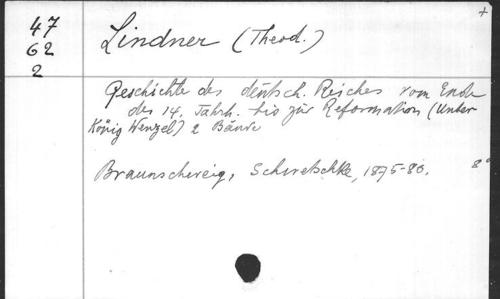 47
62
2
+
Lindner (Theod.)
Geschichte des deutsch. Reiches vom Ende
des 14. Jahrh. bis zur Reformation (Unter
König Wenzel) 2 Bände
Braunschweig, Schwetschke, 1875-80. 8°